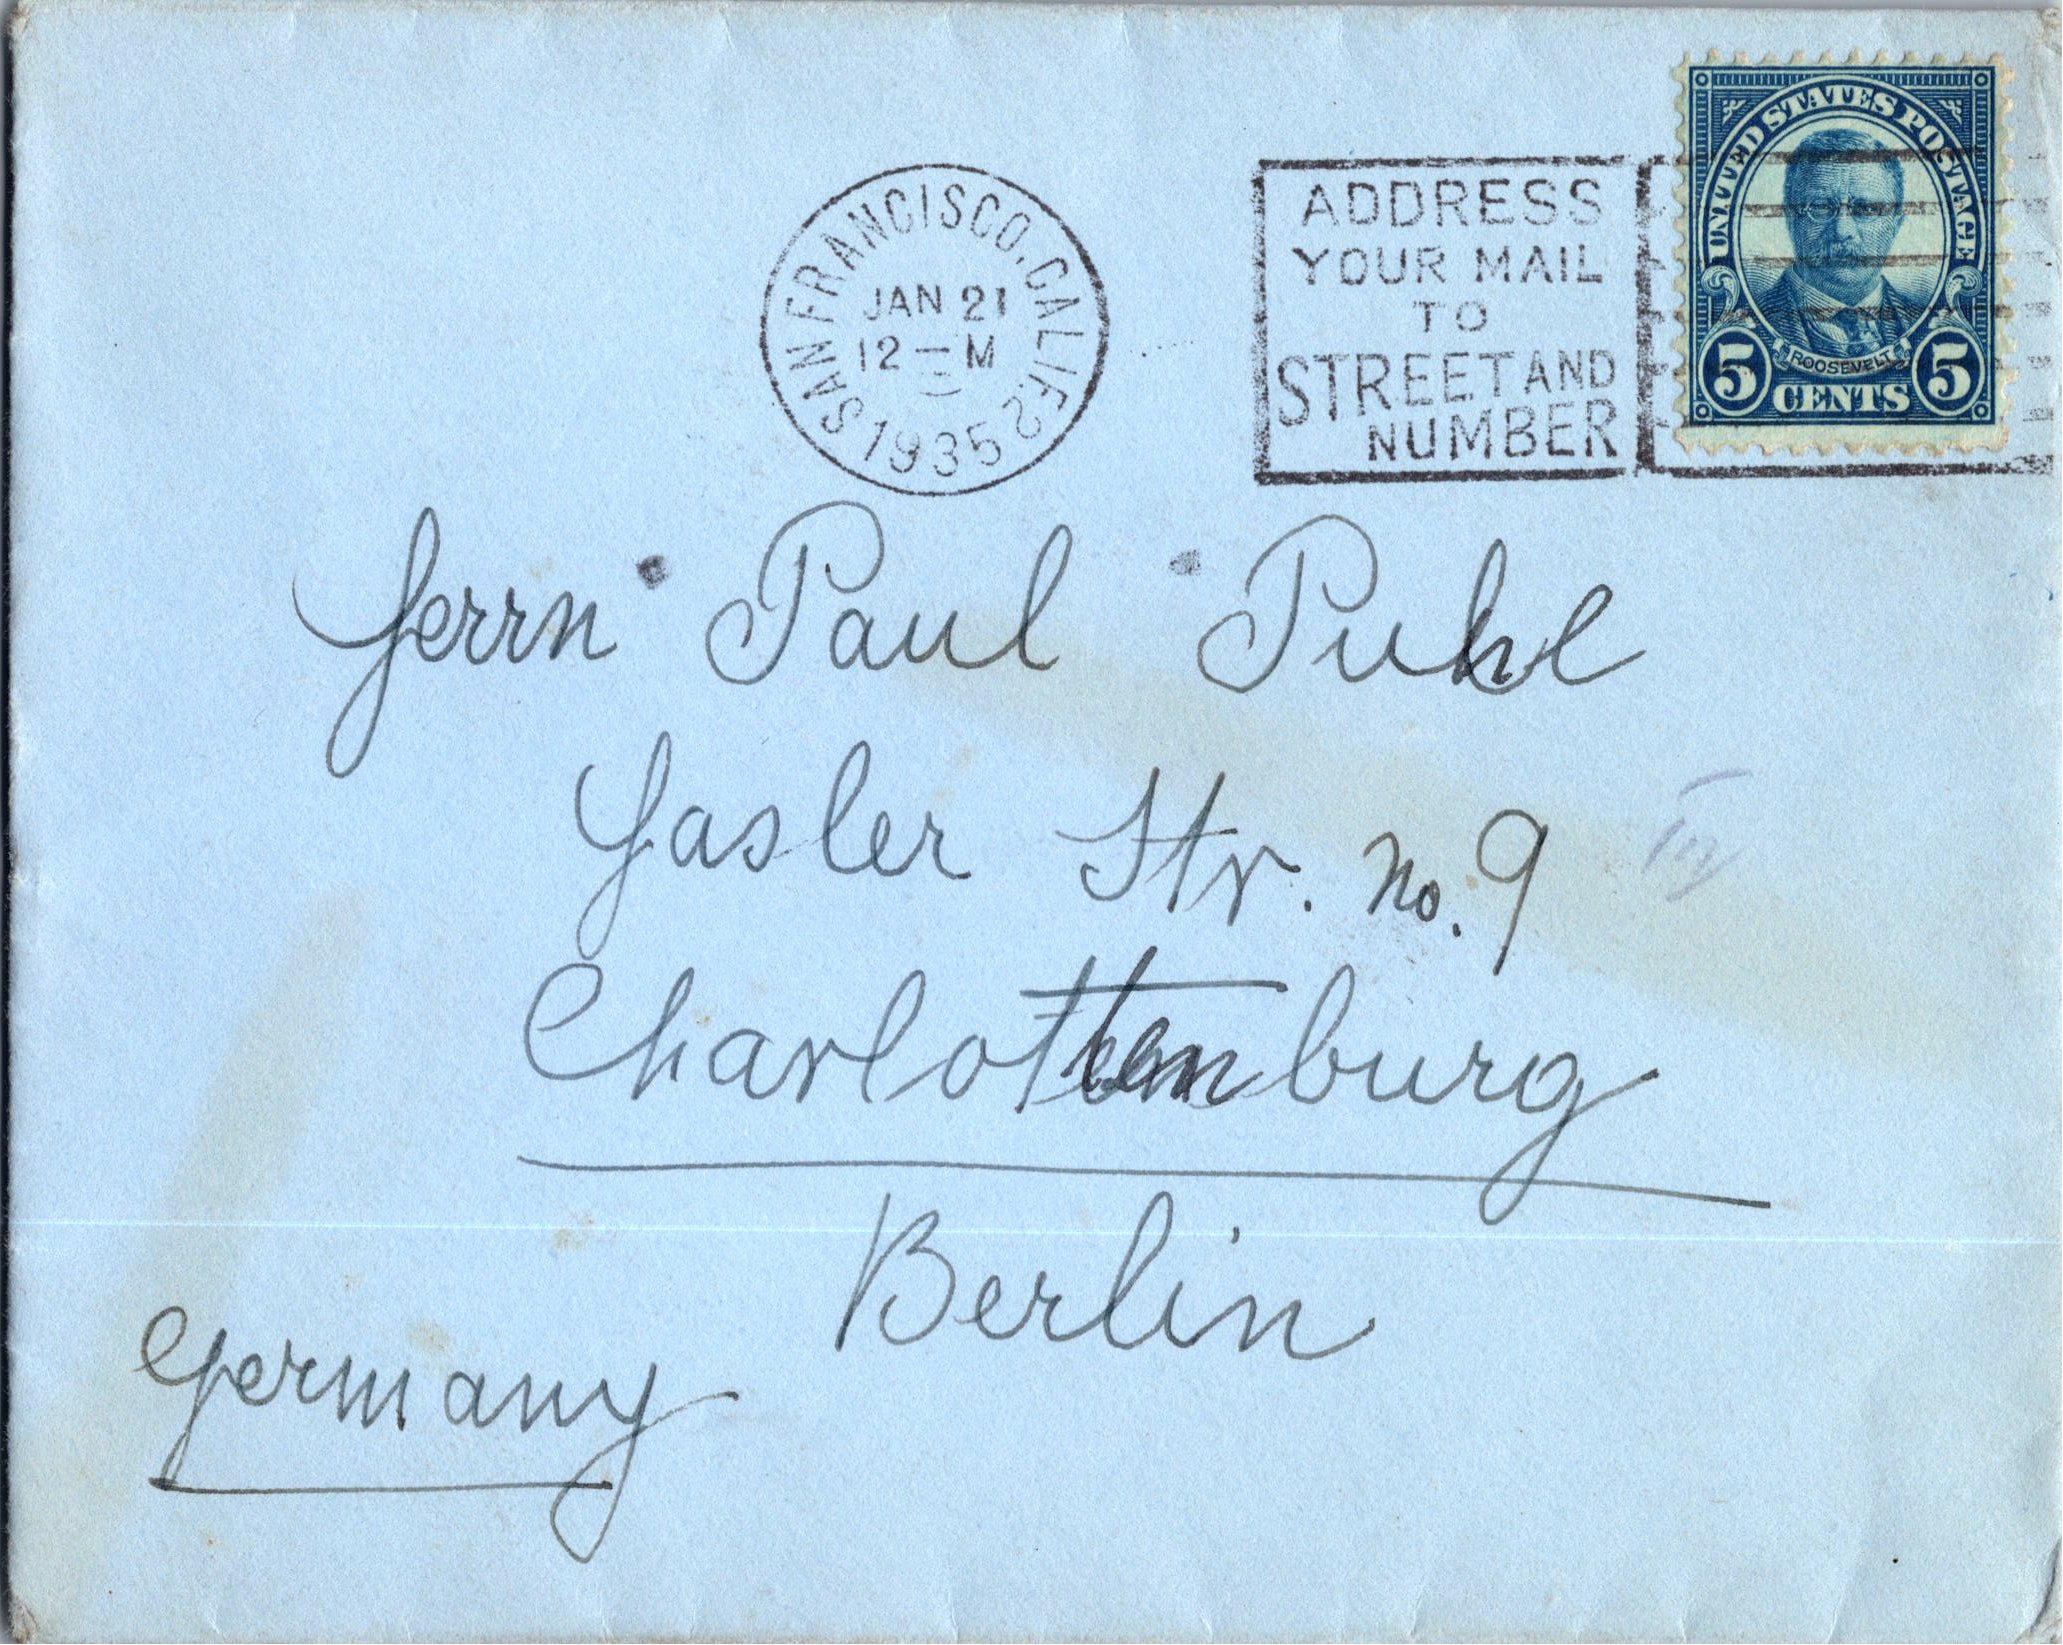 UNITED STATES POSTAGE
ROOSEVELT
5 CENTS 5
SAN FRANCISCO, CALIF. 2
JAN 21
12 — M
1935
ADDRESS
YOUR MAIL
TO
STREET AND
NUMBER
Herrn Paul Puhl
Str. No. 9
Charlottenburg
Berlin
Germany